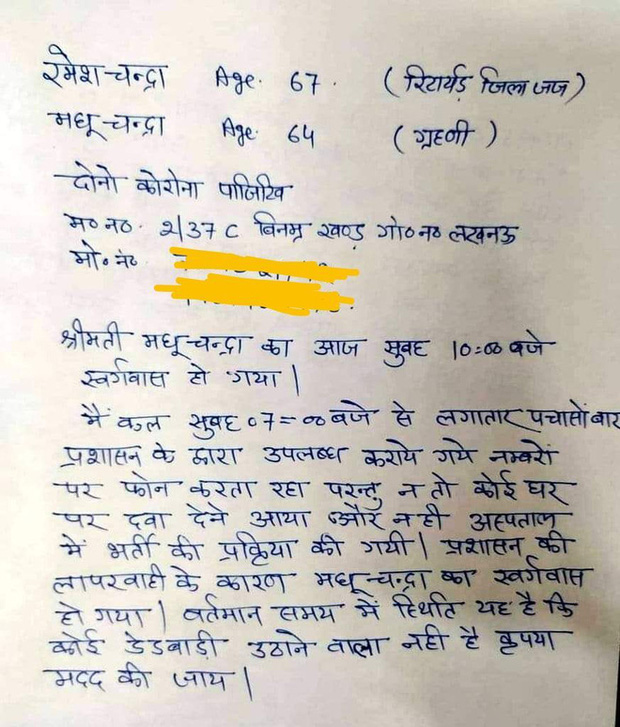 रमेश चन्द्रा Age. 67. (रिटार्यड जिला जज)
मधू चन्द्रा Age. 64 (ग्रहणी)
दोनो कोरोना पाजिटिव
म० न० 2/37 C विनम्र खण्ड़ गो० न० लखनऊ
मो० नं०
श्रीमती मधू चन्द्रा का आज सुवह 10:00 बजे
स्वर्गवास हो गया |
मैं कल सुवह 07=00 बजे से लगातार पचासों बार
प्रशासन के द्वारा उपलब्ध कराये गये नम्बरों
पर फोन करता रहा परन्तु न तो कोई घर
पर दवा देने आया और नही अस्पताल
में भर्ती की प्रक्रिया की गयी | प्रशासन की
लापरवाही के कारण मधू चन्द्रा का स्वर्गवास
हो गया | वर्तमान समय में स्थिति यह है कि
कोई डेडबाड़ी उठाने वाला नही है कृपया
मदद की जाय |